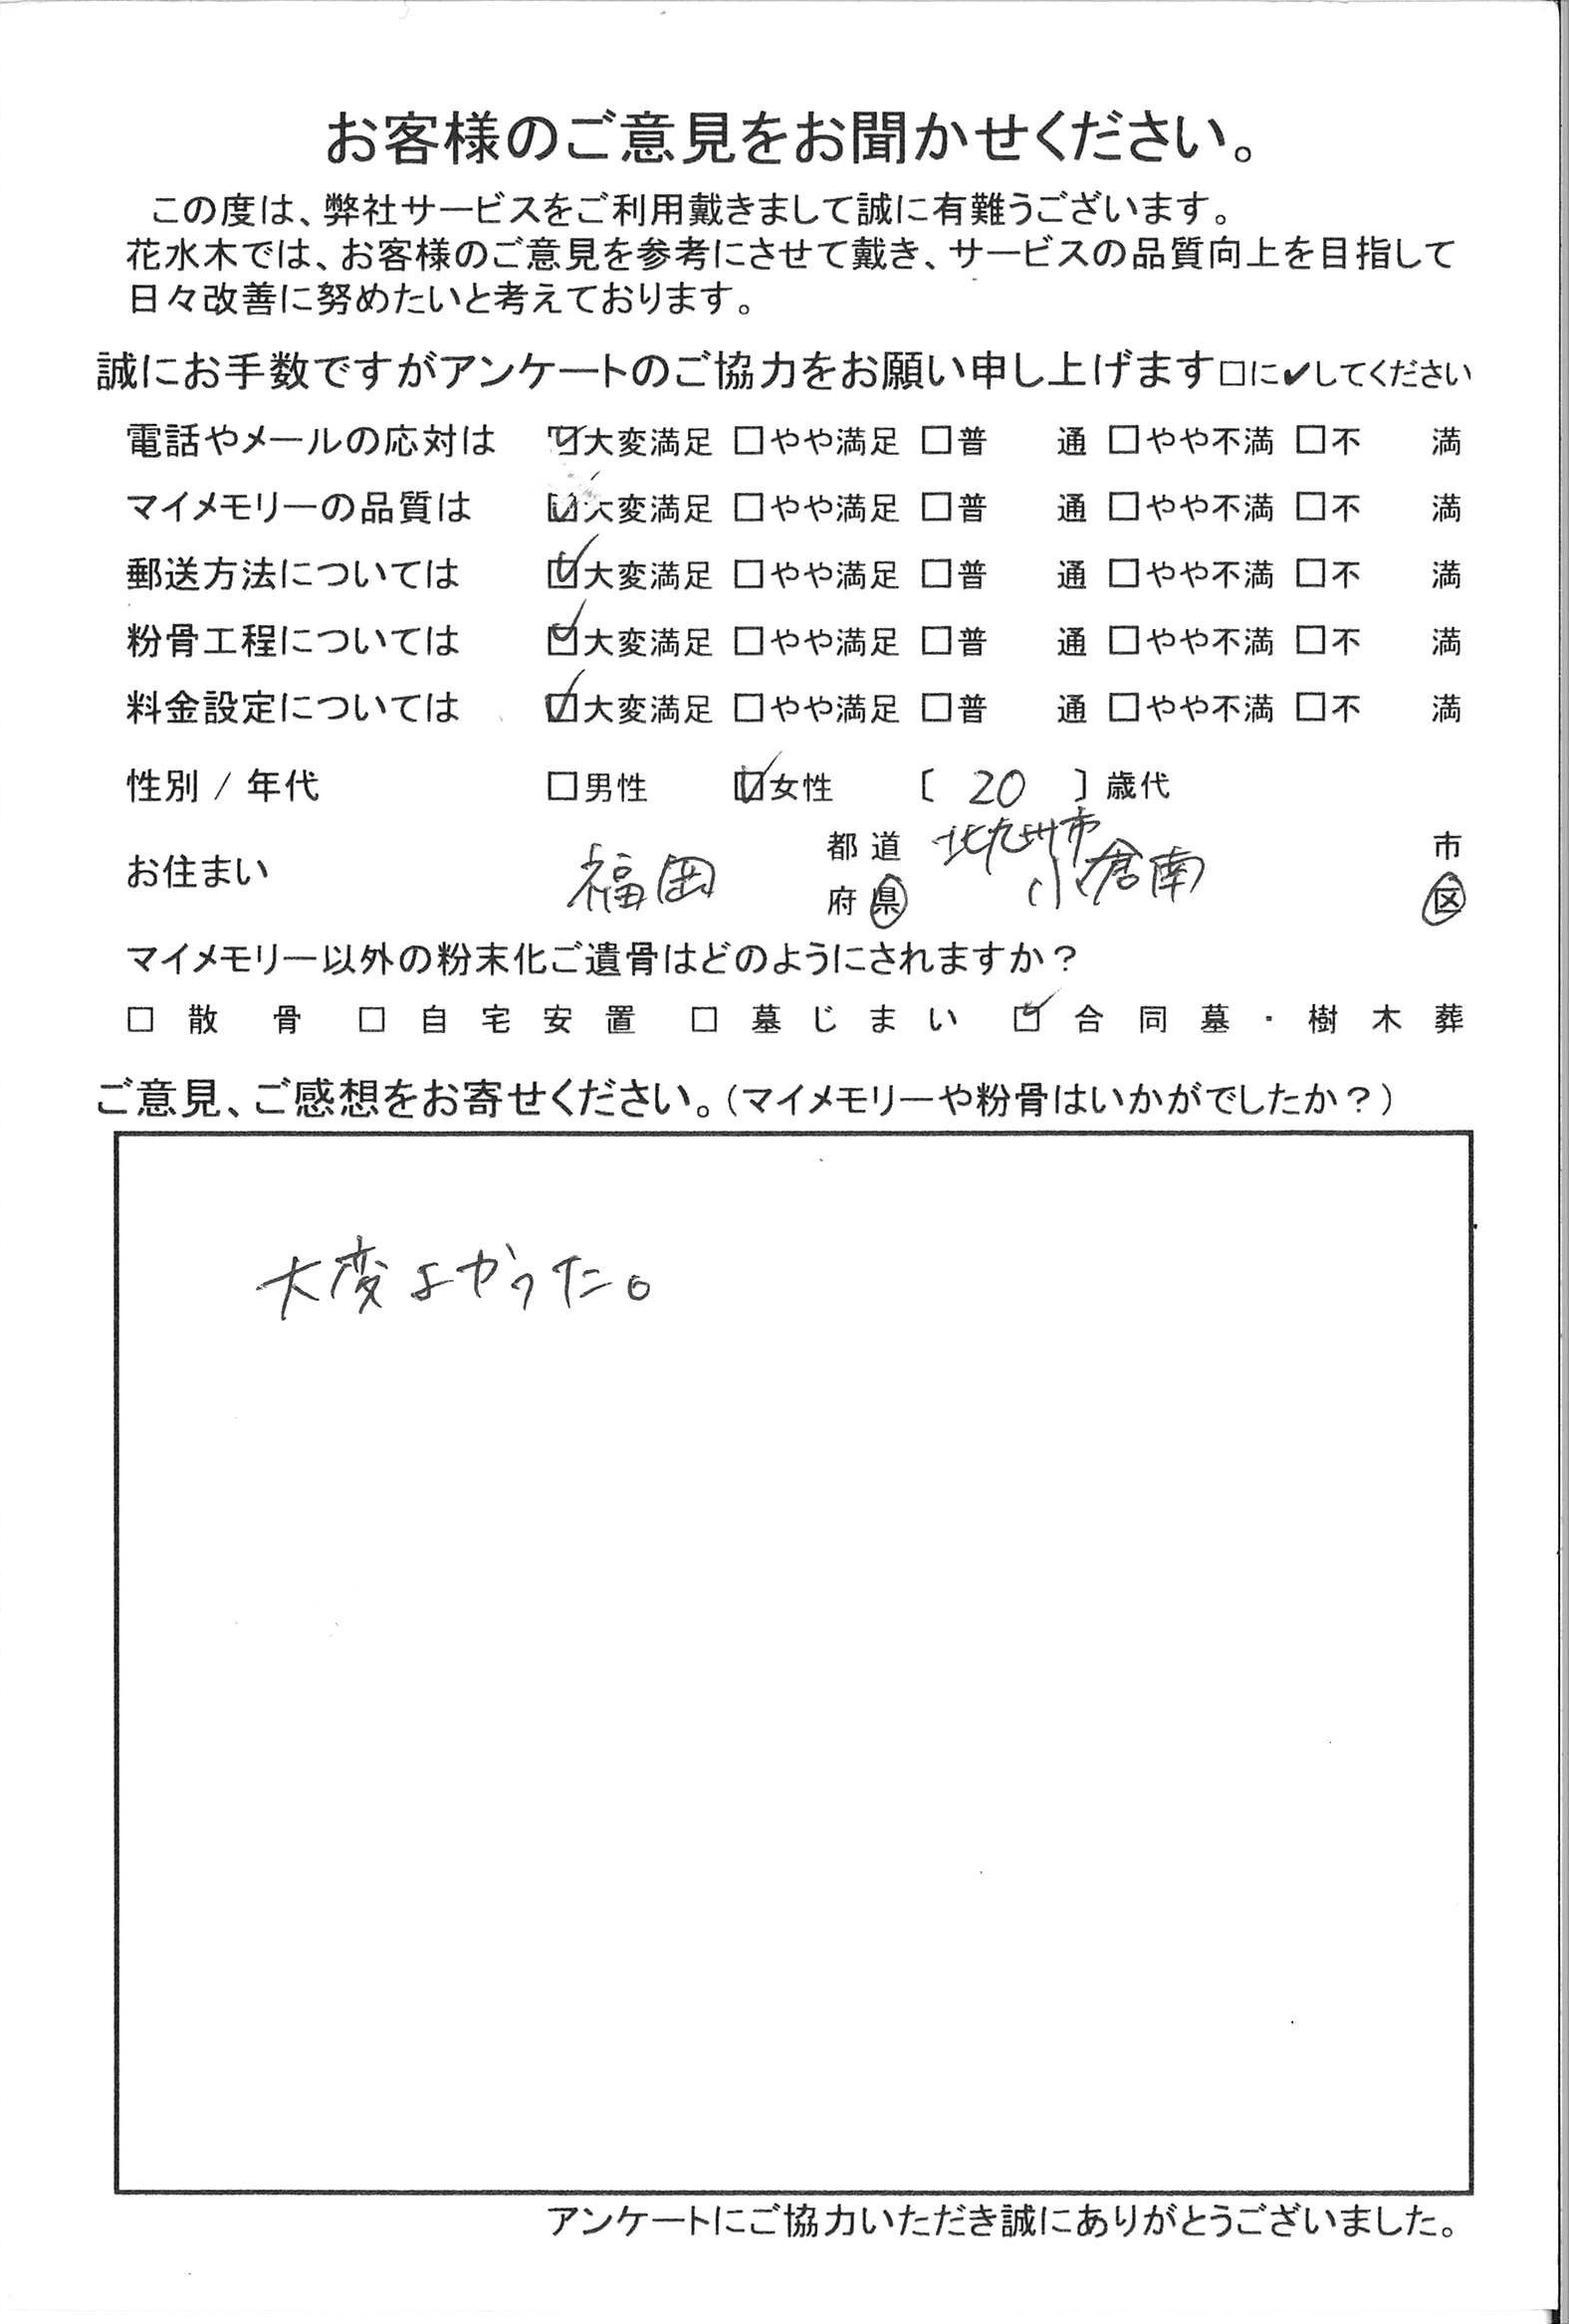 お客様のご意見をお聞かせください。
この度は、弊社サービスをご利用戴きまして誠に有難うございます。
花水木では、お客様のご意見を参考にさせて戴き、サービスの品質向上を目指して
日々改善に努めたいと考えております。
誠にお手数ですがアンケートのご協力をお願い申し上げます□に✔してください
電話やメールの応対は ☑大変満足 □やや満足 □普 通 □やや不満 □不 満
マイメモリーの品質は ☑大変満足 □やや満足 □普 通 □やや不満 □不 満
郵送方法については ☑大変満足 □やや満足 □普 通 □やや不満 □不 満
粉骨工程については ☑大変満足 □やや満足 □普 通 □やや不満 □不 満
料金設定については ☑大変満足 □やや満足 □普 通 □やや不満 □不 満
性別 / 年代 □男性 ☑女性 〔 20 〕歳代
お住まい 福岡 都道府県 北九州市小倉南 市区
マイメモリー以外の粉末化ご遺骨はどのようにされますか？
□ 散 骨 □ 自 宅 安 置 □ 墓 じ ま い ☑ 合 同 墓 ・ 樹 木 葬
ご意見、ご感想をお寄せください。（マイメモリーや粉骨はいかがでしたか？）
大変よかった。
アンケートにご協力いただき誠にありがとうございました。